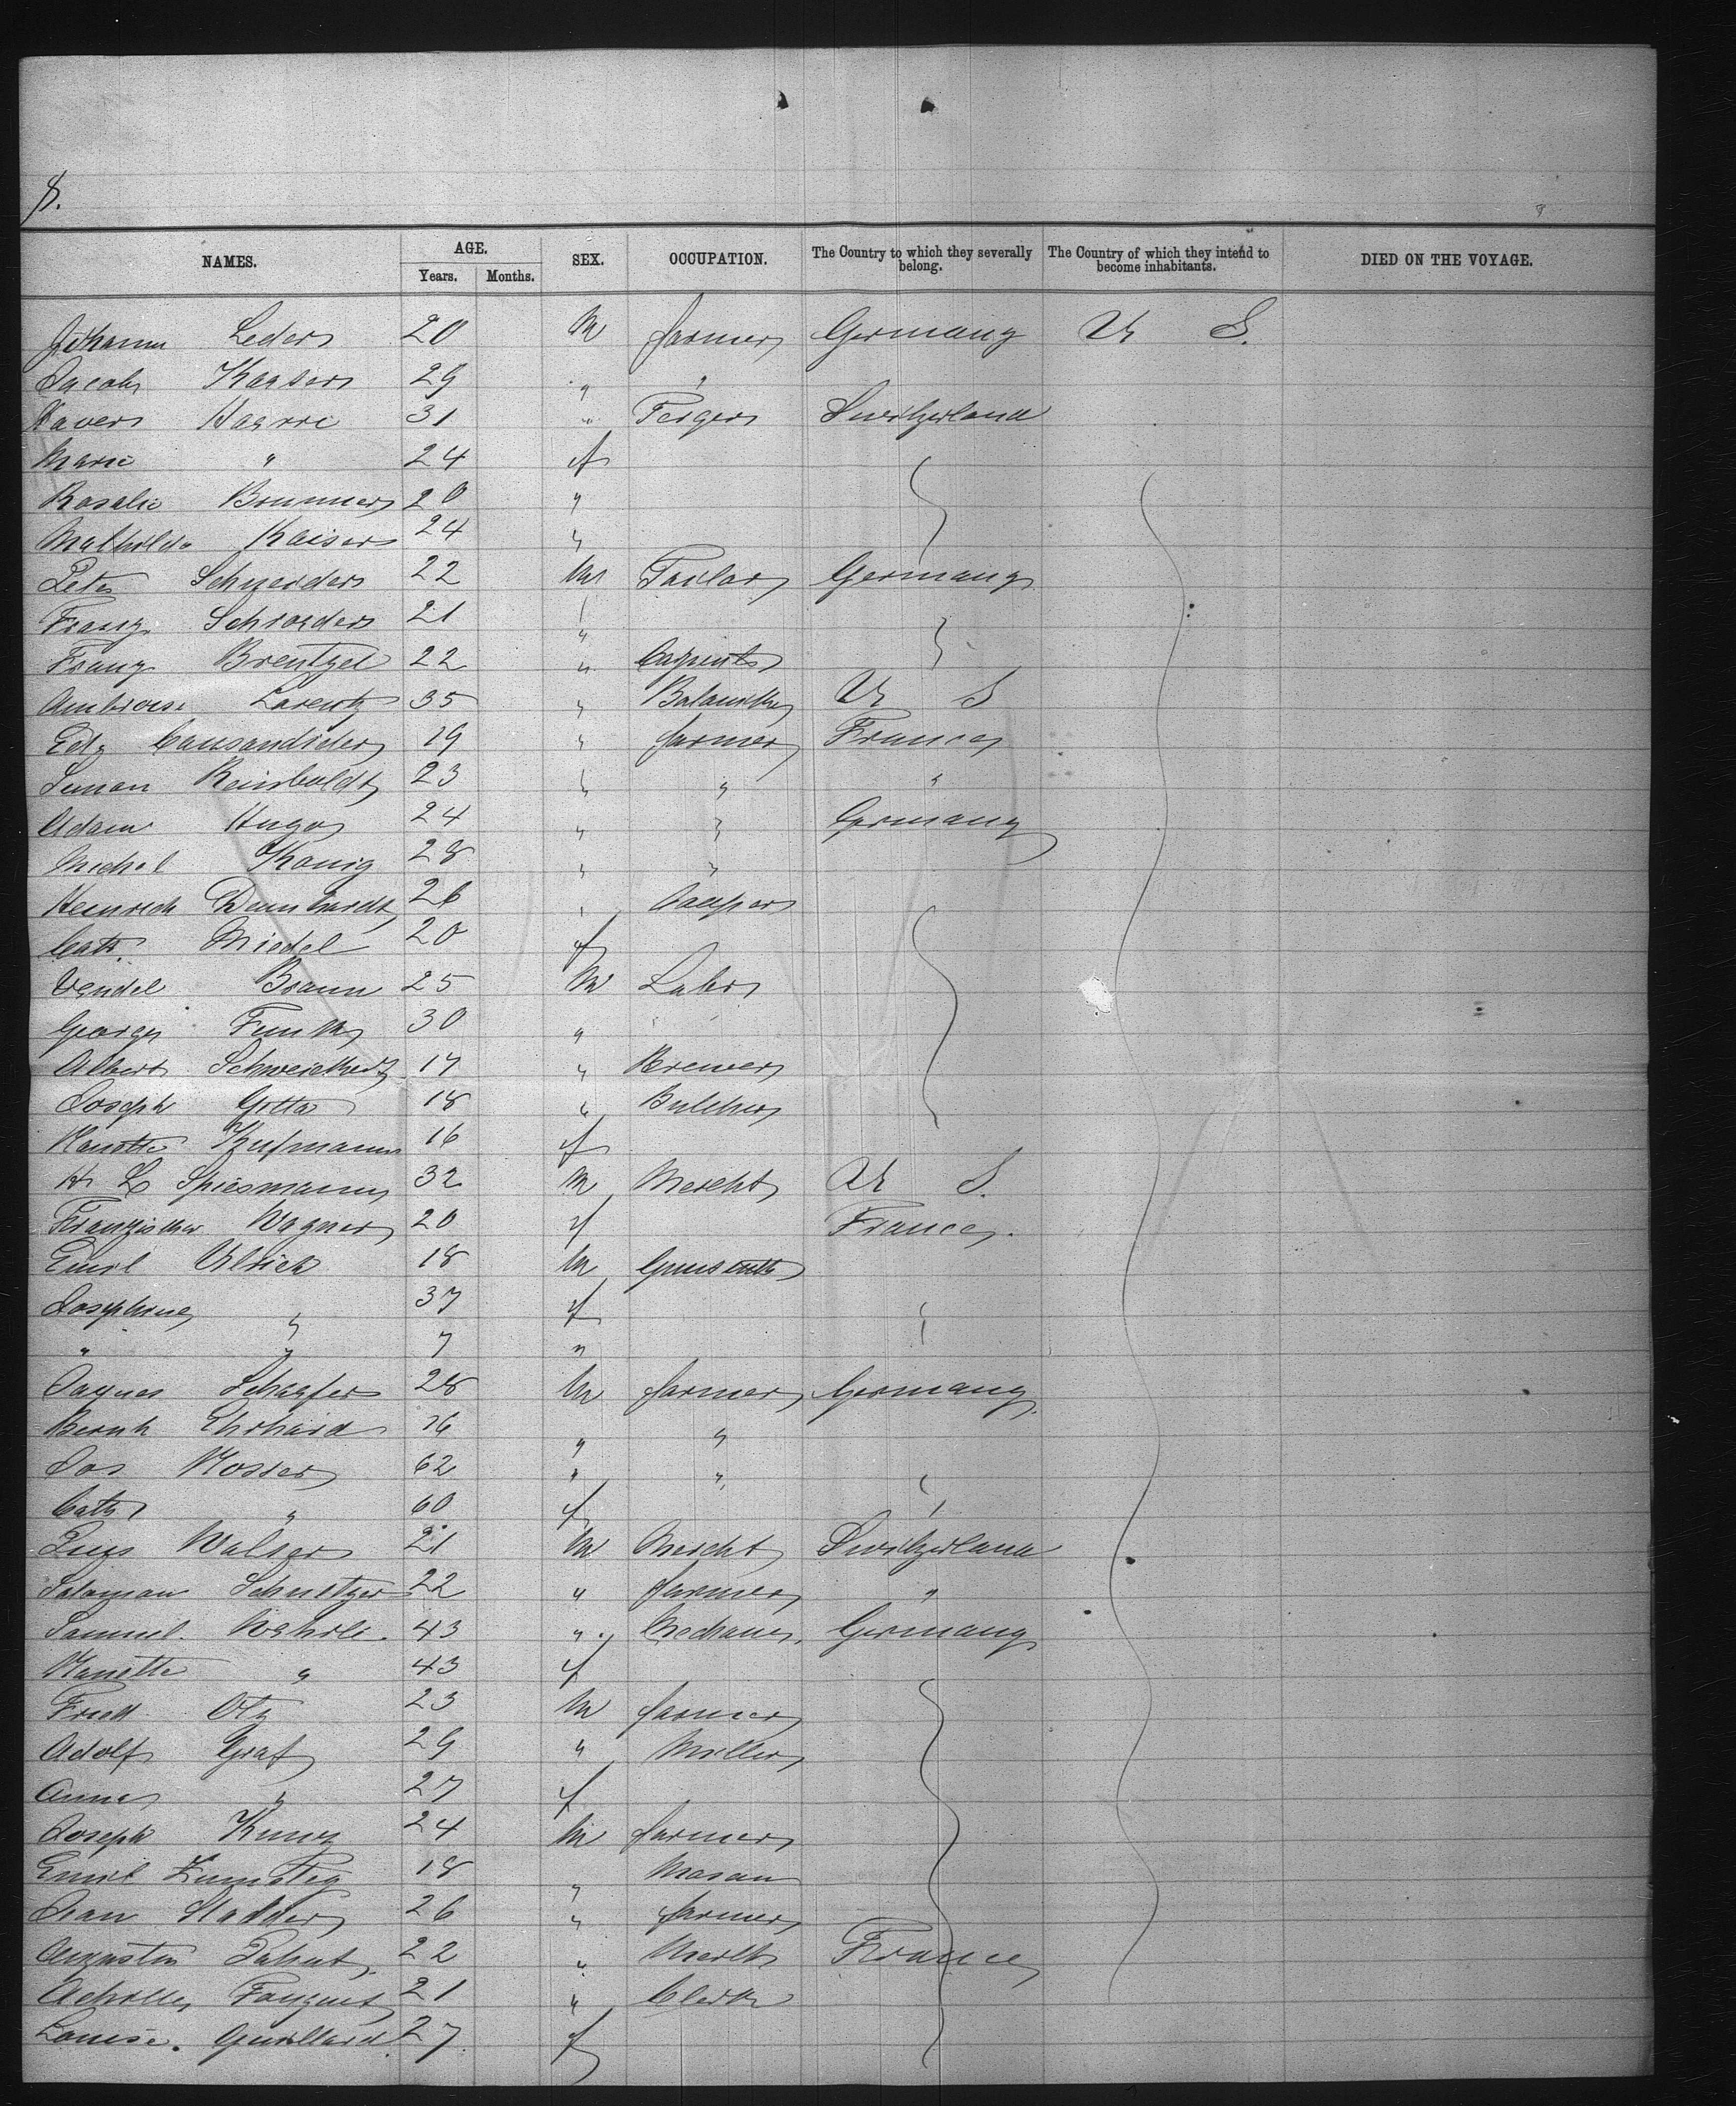 8.
NAMES. AGE. SEX. OCCUPATION. The Country to which they severally belong. The Country of which they intend to become inhabitants. DIED ON THE VOYAGE.
Years. Months.
Johann Leder 20 M farmer Germany U S.
Jacob Kayser 29 " "
Xaver 31 " Switzerland
Marie " 24 f
Rosalie Brunner 20 "
Mathilde Kaiser 24 "
Peter Schneider 22 M Tailor Germany
Franz Schroeder 21 "
Franz Brentzel 22 " Carpenter
Ambroise Lorentz 35 " U S
Edg 19 " farmer France
Simon Reinboldt 23 " " "
Adam Hugo 24 " " Germany
Michel Konig 28 " "
Heinrich Dumhardt 26 " Cooper
Cath. Miedel 20 f
Vendel Braun 25 M Labr
George Funk 30 "
Albert Schweickert 17 " Brewer
Joseph Gotta 18 " Butcher
Nanette Kufmann 16 f
H L Spiesmann 32 M Mercht U S.
Franziska Wagner 20 f France.
Emil Ulrich 18 M Gunsmith
Josephine " 37 f
" " 7 "
Jaques Schaefer 28 M farmer Germany
Bernh Ehrhard 16 " "
Jos Mosser 62 " "
Cath " 60 f "
Walser 21 M Mercht Switzerland
Saloman Schnetzer 22 " farmer "
Samuel Wehrle 43 " Mechanic. Germany
Nanette " 43 f
Fried Otz 23 M farmer
Adolf Graf 29 " Miller
Anna " 27 f
Joseph Kunz 24 M farmer
Emil Zumsteg 18 " Mason
Jean Stadder 26 " farmer
Augustin 22 " France
Achilles Fouquet 21 " Clerk
Louise. Guillard 27 f